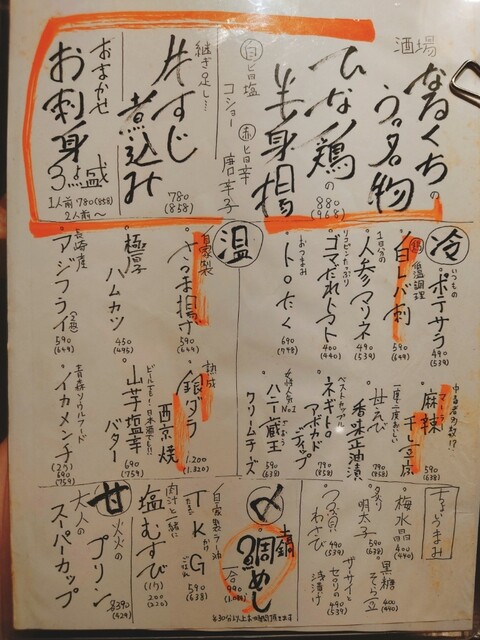 酒場
なるくちの
う名物
ひな鶏の
半身揚
880
(968)
白旨塩
コショー
赤旨辛
唐辛子
継ぎ足し…
牛すじ
煮込み
780
(858)
おまかせ
お刺身
3点盛
1人前 780(858)
2人前〜
冷
いつもの
ポテサラ
490
(539)
低温調理
白レバ刺
590
(649)
1日分の
人参マリネ
490
(539)
リコピンたっぷり
ゴマだれトマト
400
(440)
おつまみ
トロたく
690
(748)
麻辣
マーラー
干し豆腐
590
(638)
一度で二度おいしい
甘えび
香味正油漬
790
(858)
ベストカップル
ネギトロ
アボカド
ディップ
790
(858)
女性人気No.1
ハニー蔵王
クリームチーズ
590
(638)
温
自家製
さつま揚げ
590
(644)
極厚
ハムカツ
450
(495)
長崎産
アジフライ
590
(649)
熟成
銀ダラ
西京焼
1.200
(1.320)
ビールでも!日本酒でも!!
山芋塩辛
バター
690
(759)
青森ソウルフード
イカメンチ
(2ケ)
690
(759)
ちょうまみ
梅水晶
400
(440)
炙り
明太子
590
(638)
つぶ貝
わさび
490
(539)
黒糖
そら豆
400
(440)
ザーサイと
セロリの
浅漬け
490
(539)
〆
土鍋
鯛めし
一合
990
8:30分以上お時間頂きます
自家製ラー油
TKG
たまご
かけ
ごはん
590
(638)
肉汁と一緒に
塩むすび
(1ケ)
200
(220)
甘
火火の
プリン
大人の
スーパーカップ
各390
(429)